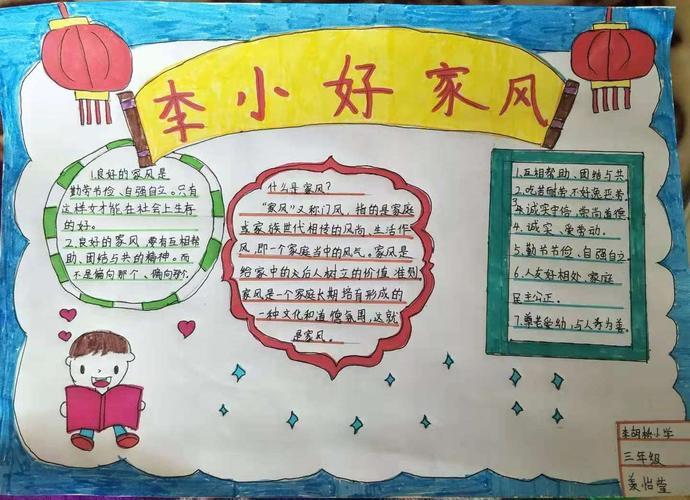 李小好家风
1.良好的家风是
勤劳节俭、自强自立。只有
这样才能在社会上生存
的好。
2.良好的家风,要有互相帮
助、团结与共的精神。而
不是偏向那个、偏向那个
什么是家风?
“家风”又称门风,指的是家庭
或家族世代相传的风尚、生活作
风,即一个家庭当中的风气。家风是
给家中的后人树立的价值准则
家风是一个家庭长期培育形成的
一种文化和道德氛围,这就
是家风。
1.互相帮助、团结与共
2.吃苦耐劳不好逸恶劳
3.诚实守信、崇尚道德
4.诚实、爱劳动。
5.勤节俭、自强自立。
6.人友好相处、家庭
民主公正。
7.尊老爱幼,与人为善。
李胡桥小学
三年级
姜怡莹